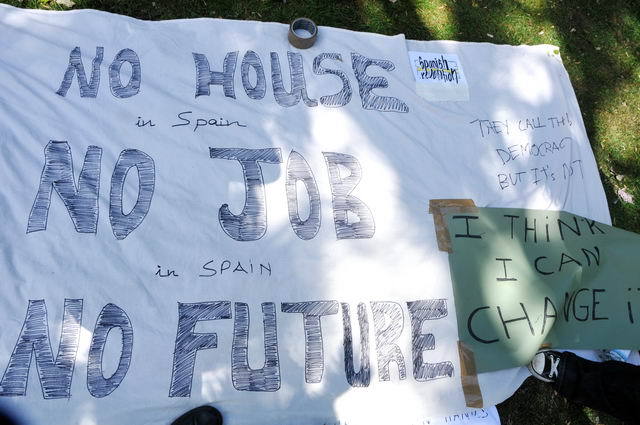 NO HOUSE
in Spain
NO JOB
in SPAIN
NO FUTURE
Spanish
revolution
THEY CALL THIS
DEMOCRACY
BUT IT'S NOT
I THiNK
I CAN
CHANGE iT